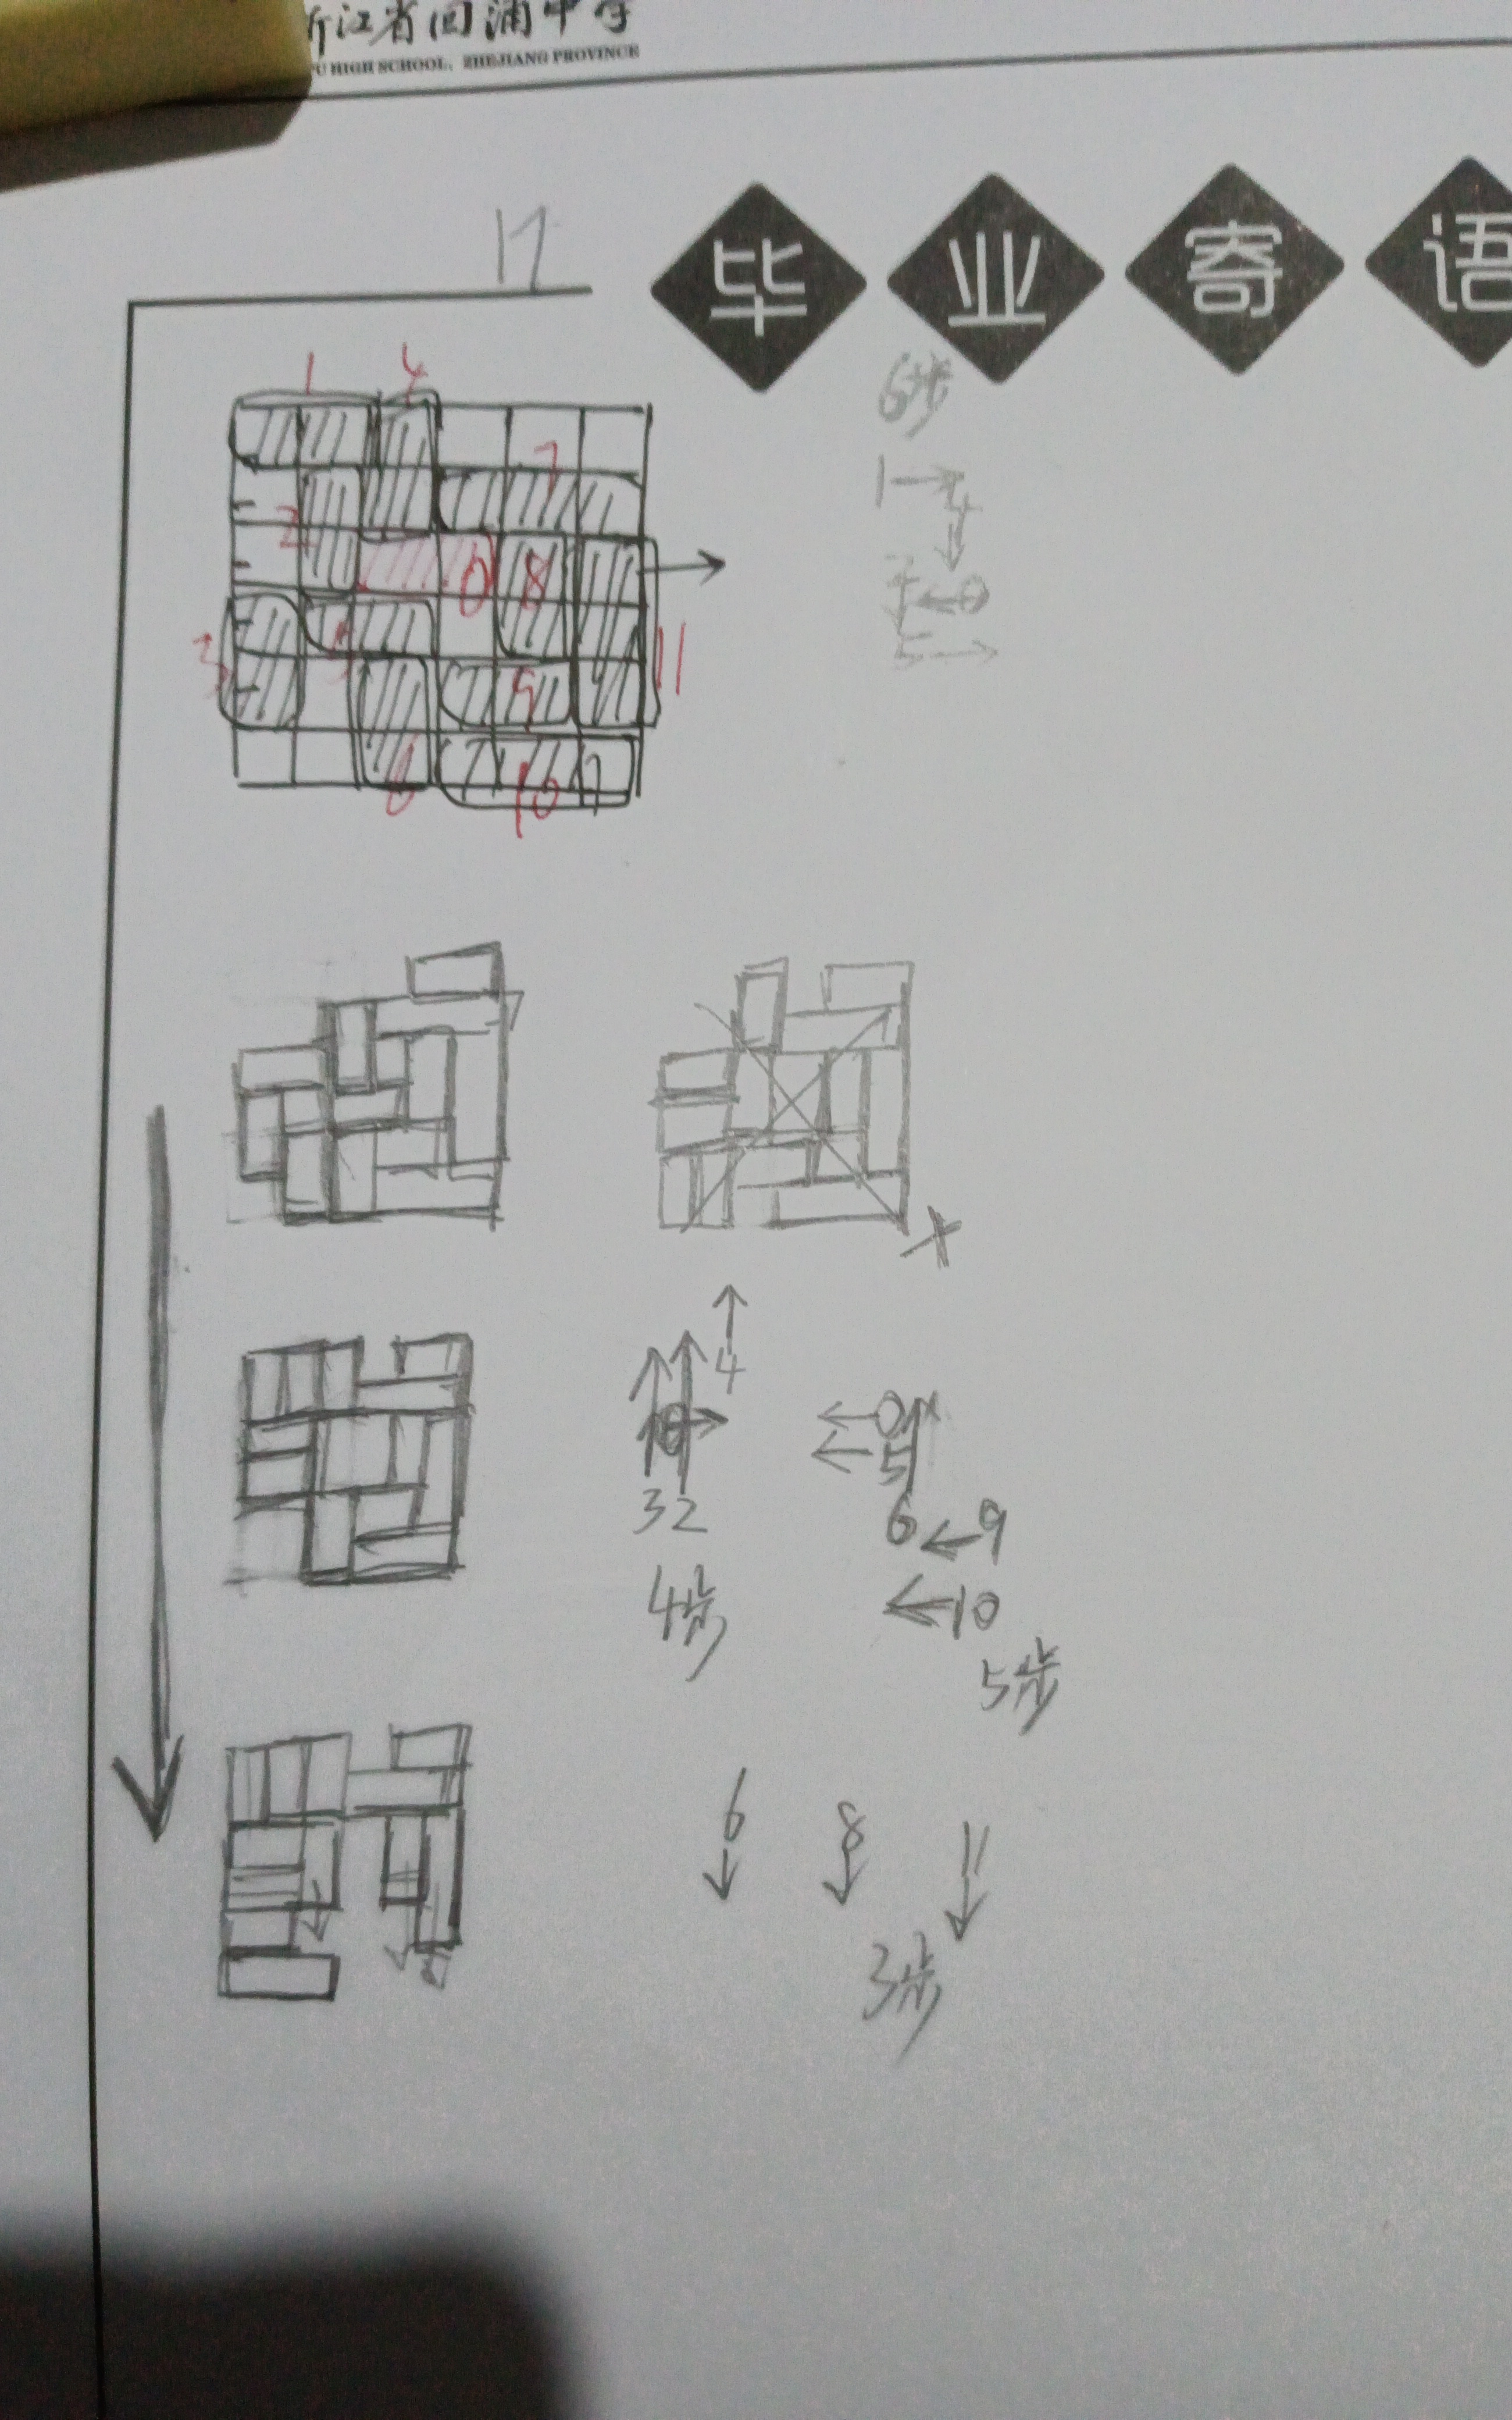 浙江省回浦中学
PU HIGH SCHOOL, ZHEJIANG PROVINCE
毕业寄语
17
1 4
7
2
0 8
3 5 11
9
6 10
6步
1→4
↓
7←0
5→
↑
4
↑↑
0→
32
4步
←0
←5
6←9
←10
5步
6 8 11
↓ ↓ ↓
3步